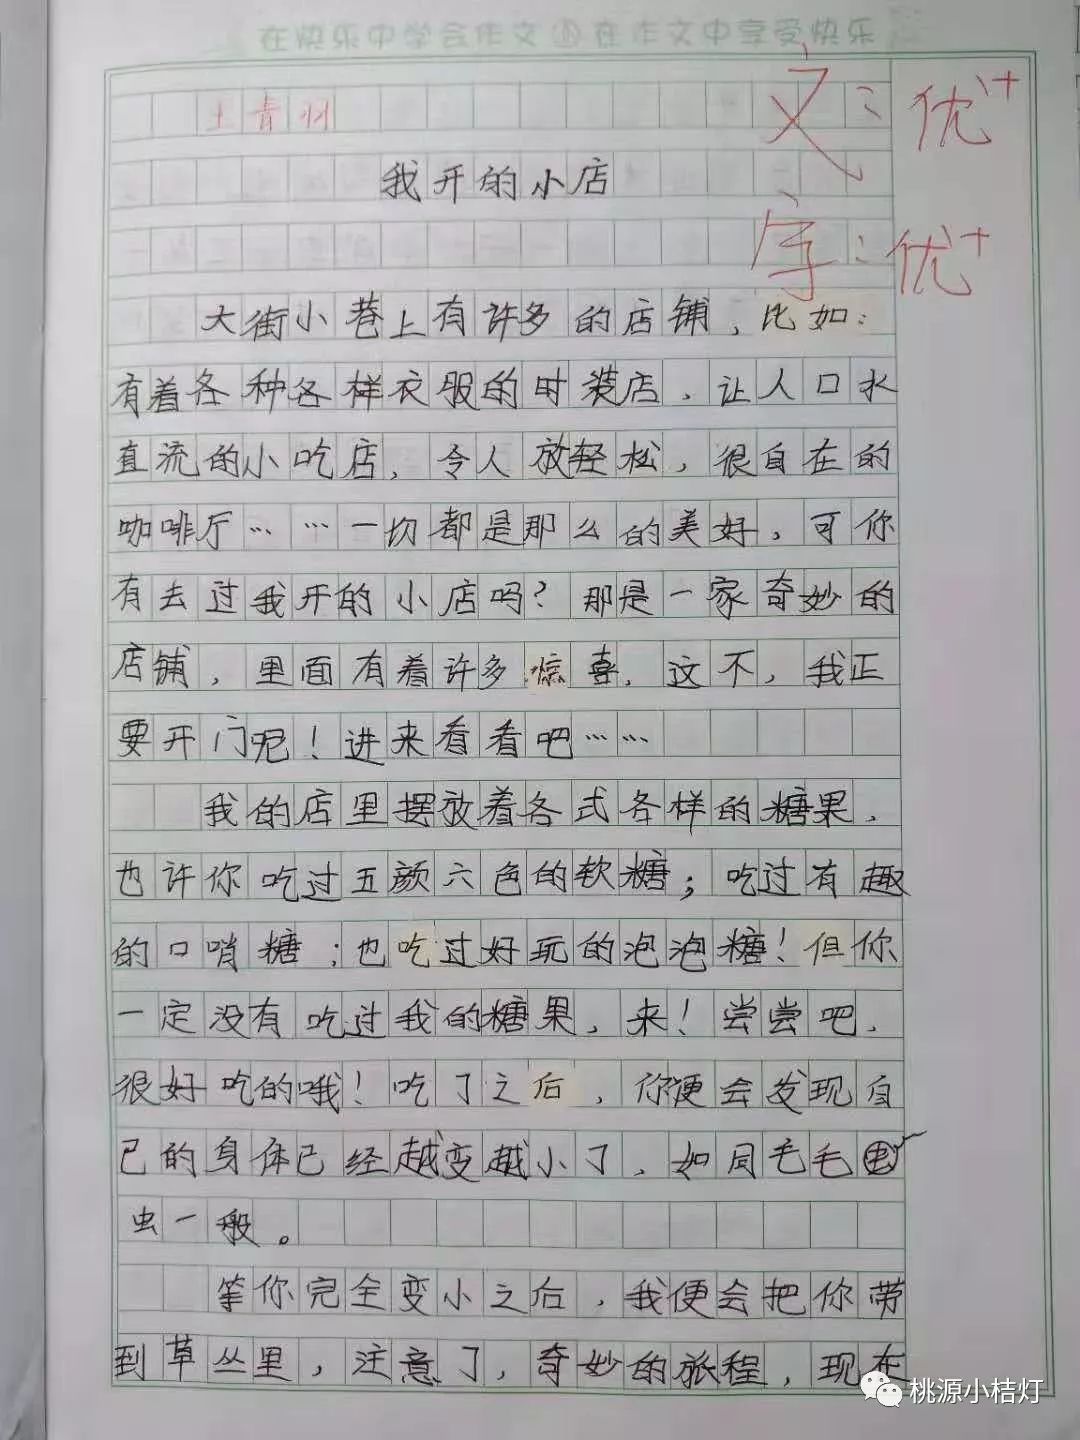 在快乐中学会作文 在作文中享受快乐
王青州
文：优+
我开的小店
字：优+
大街小巷上有许多的店铺，比如：
有着各种各样衣服的时装店，让人口水
直流的小吃店，令人放轻松，很自在的
咖啡厅……一切都是那么的美好，可你
有去过我开的小店吗？那是一家奇妙的
店铺，里面有着许多惊喜，这不，我正
要开门呢！进来看看吧……
我的店里摆放着各式各样的糖果，
也许你吃过五颜六色的软糖；吃过有趣
的口哨糖；也吃过好玩的泡泡糖！但你
一定没有吃过我的糖果，来！尝尝吧，
很好吃的哦！吃了之后，你便会发现自
己的身体已经越变越小了，如同毛毛
虫一般。
等你完全变小之后，我便会把你带
到草丛里，注意了，奇妙的旅程，现在
桃源小桔灯